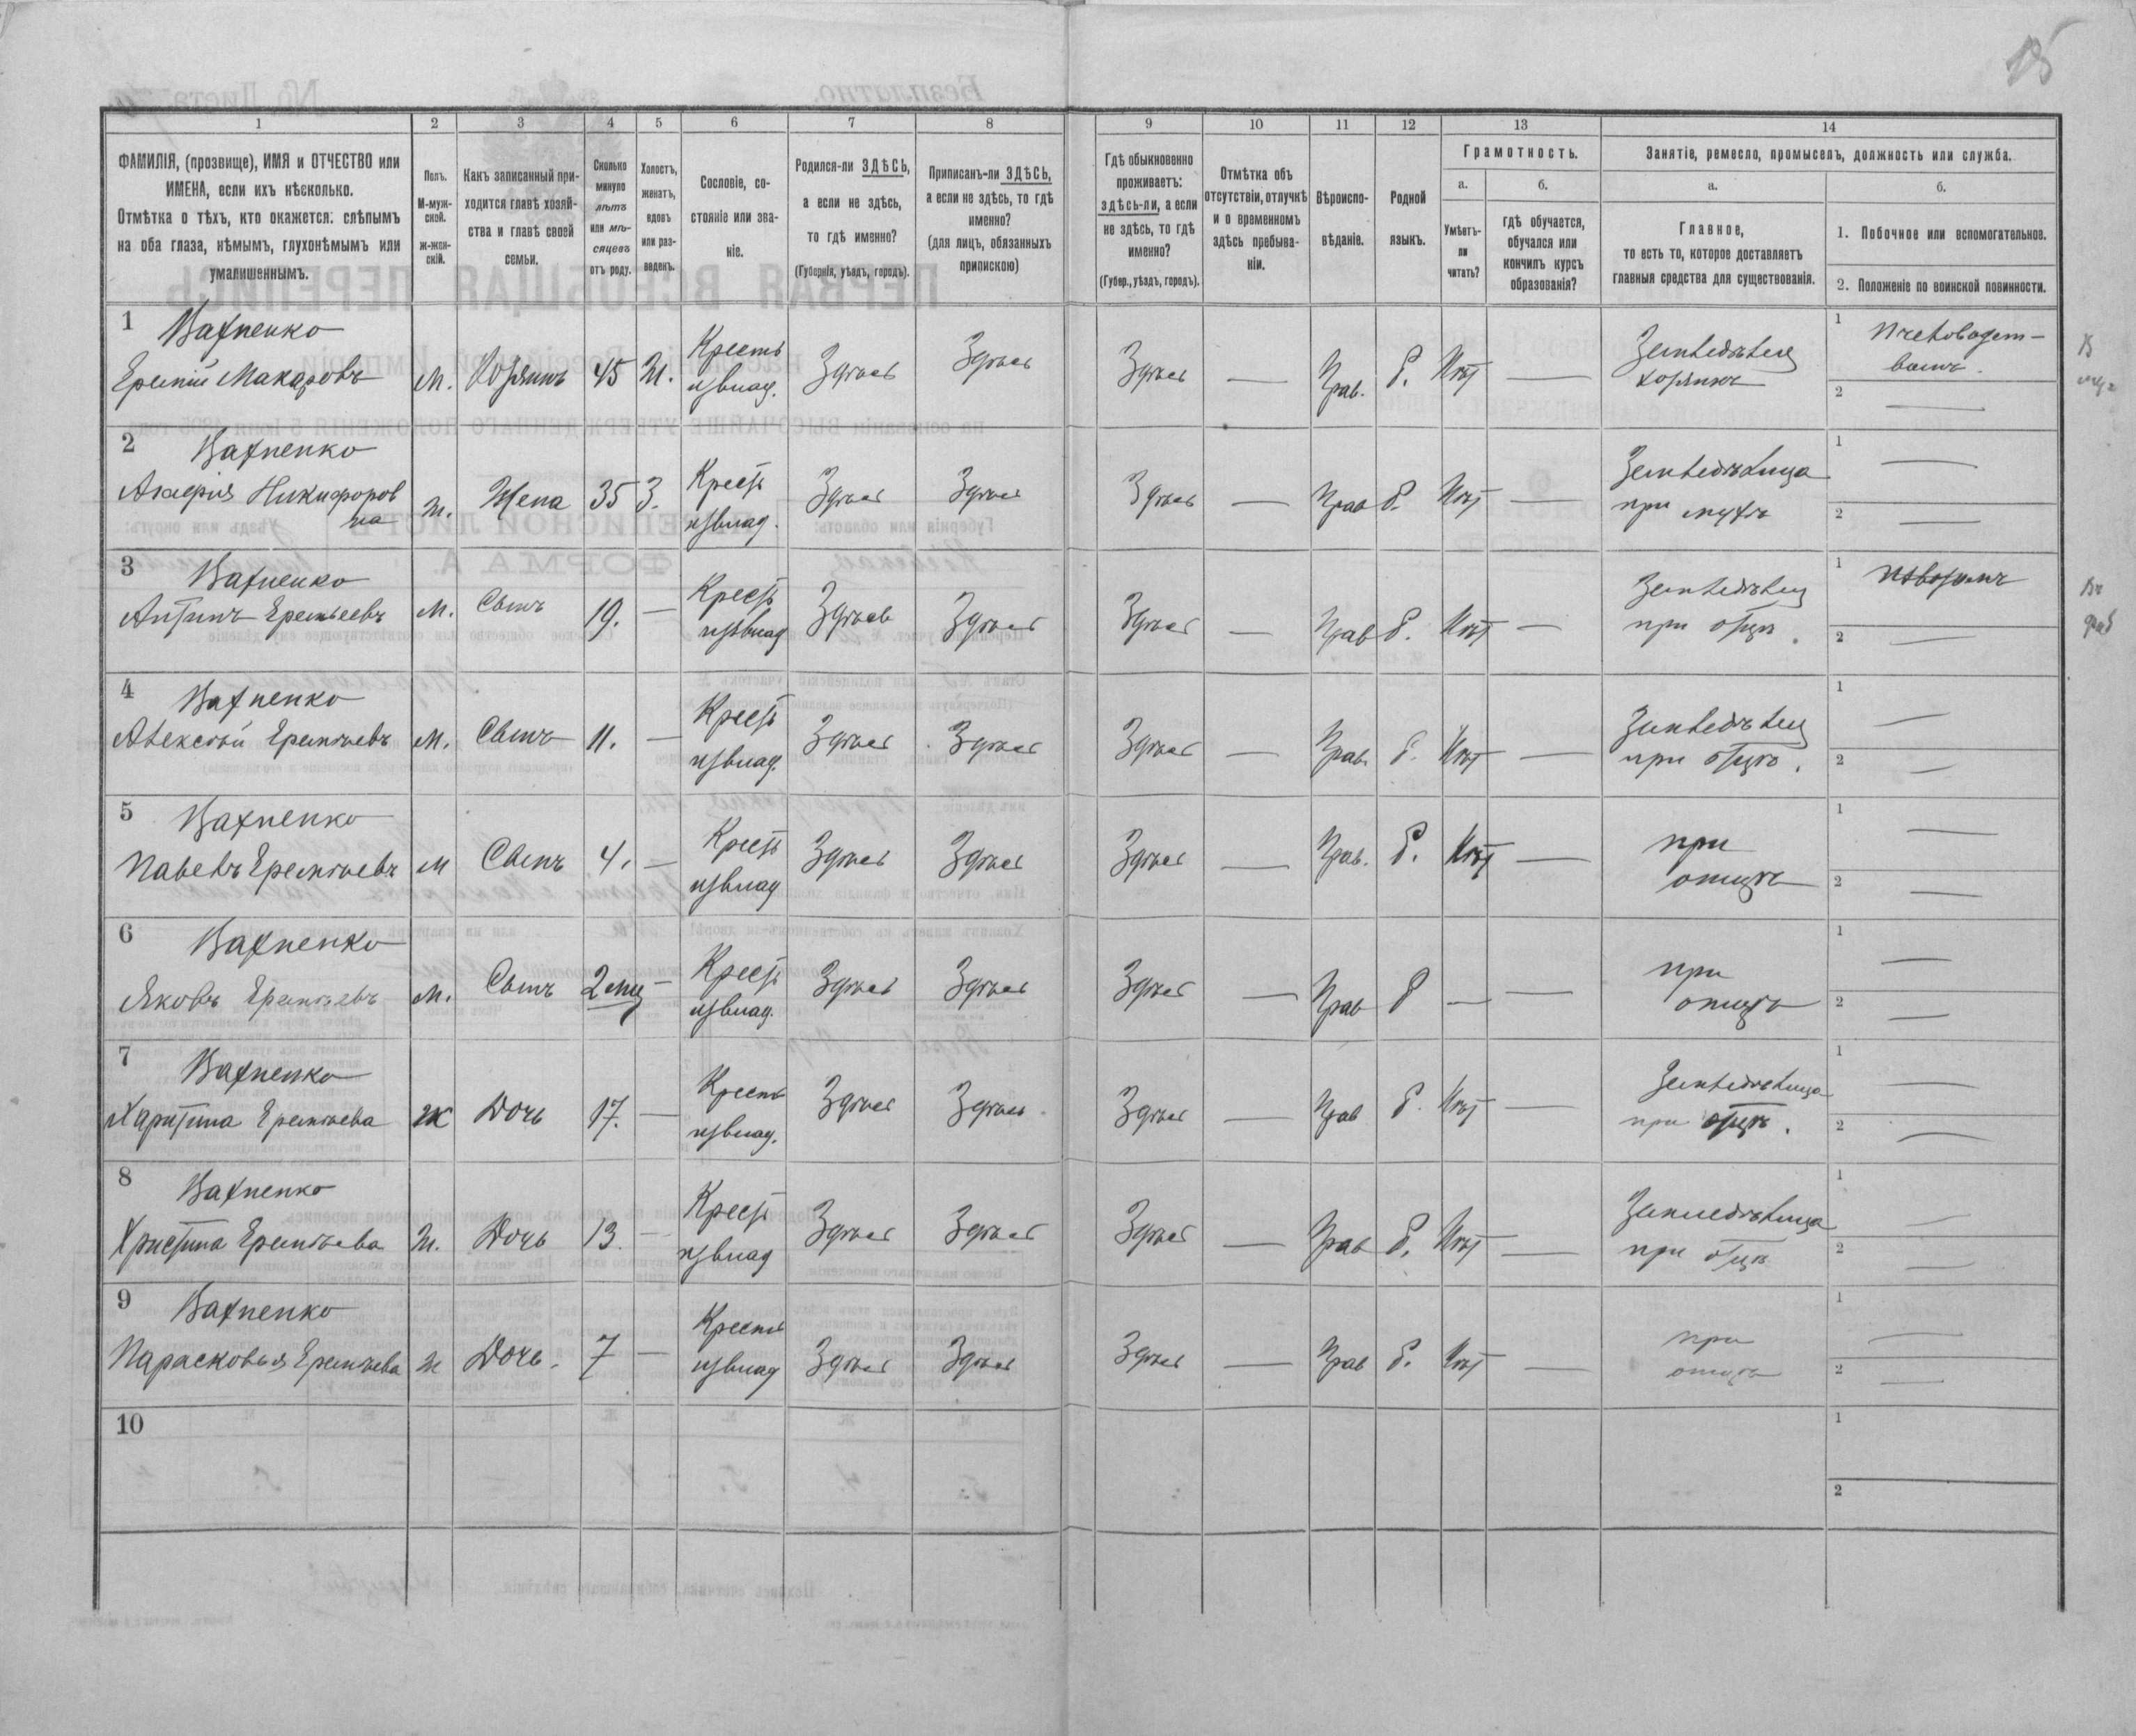 1 2 3 4 5 6 7 8 9 10 11 12 13 14
ФАМИЛІЯ, (прозвище), ИМЯ и ОТЧЕСТВО или
ИМЕНА, если ихъ нѣсколько.
Отмѣтка о тѣхъ, кто окажется: слѣпымъ
на оба глаза, нѣмымъ, глухонѣмымъ или
умалишеннымъ.
Полъ.
М-муж-
ской.
ж-жен-
скій.
Какъ записанный при-
ходится главѣ хозяй-
ства и главѣ своей
семьи.
Сколько
минуло
лѣтъ
или мѣ-
сяцевъ
отъ роду.
Холостъ,
женатъ,
вдовъ
или раз-
веденъ.
Сословіе, со-
стояніе или зва-
ніе.
Родился-ли ЗДѢСЬ,
а если не здѣсь,
то гдѣ именно?
(Губернія, уѣздъ, городъ).
Приписанъ-ли ЗДѢСЬ,
а если не здѣсь, то гдѣ
именно?
(для лицъ, обязанныхъ
припискою)
Гдѣ обыкновенно
проживаетъ:
здѣсь-ли, а если
не здѣсь, то гдѣ
именно?
(Губер., уѣздъ, городъ).
Отмѣтка объ
отсутствіи, отлучкѣ
и о временномъ
здѣсь пребыва-
ніи.
Вѣроиспо-
вѣданіе.
Родной
языкъ.
Грамотность.
а.
Умѣетъ-
ли
читать?
б.
гдѣ обучается,
обучался или
кончилъ курсъ
образованія?
Занятіе, ремесло, промыселъ, должность или служба.
а.
Главное,
то есть то, которое доставляетъ
главныя средства для существованія.
б.
1. Побочное или вспомогательное.
2. Положеніе по воинской повинности.
1 Вахненко
Еремій Макаровъ М. Хозяинъ 45 Ж. Кресть
извлад. Здѣсь Здѣсь Здѣсь — Прав. Р. Нѣт — Земледѣлец
хозяинъ 1 Пчеловодст-
вомъ.
2 —
2 Вахненко
Никифоров
на Ж. Жена 35 З. Крест
извлад. Здѣсь Здѣсь Здѣсь — Прав Р. Нѣт — Земледѣлица
при мужѣ 1 —
2 —
3 Вахненко
Антинъ Еремѣевъ М. Сынъ 19. — Крест
извлад Здѣсь Здѣсь Здѣсь — Прав Р. Нѣт — Земледѣлец
при отцѣ. 1 Извозомъ
2 —
4 Вахненко
Алексѣй Еремѣевъ М. Сынъ 11. — Крест
извлад. Здѣсь Здѣсь Здѣсь — Прав. Р. Нѣт — Земледѣлец
при отцѣ. 1 —
2 —
5 Вахненко
Павелъ Еремѣевъ М Сынъ 4. — Крест
извлад Здѣсь Здѣсь Здѣсь — Прав. Р. Нѣт — при
отцѣ 1 —
2 —
6 Вахненко
Яковъ Еремѣевъ М. Сынъ 2 мц — Крест
извлад. Здѣсь Здѣсь Здѣсь — Прав Р — — при
отцѣ 1 —
2 —
7 Вахненко
Харитина Еремѣева Ж Дочь 17. — Кресть
извлад. Здѣсь Здѣсь Здѣсь — Прав Р. Нѣт — Земледѣлица
при отцѣ. 1 —
2 —
8 Вахненко
Христина Еремѣева Ж. Дочь 13. — Крест
извлад Здѣсь Здѣсь Здѣсь — Прав Р. Нѣт — Земледѣлица
при отцѣ 1 —
2 —
9 Вахненко
Парасковья Еремѣева Ж Дочь. 7 — Кресть
извлад Здѣсь Здѣсь Здѣсь — Прав Р. Нѣт — при
отцѣ 1 —
2 —
10 1
2